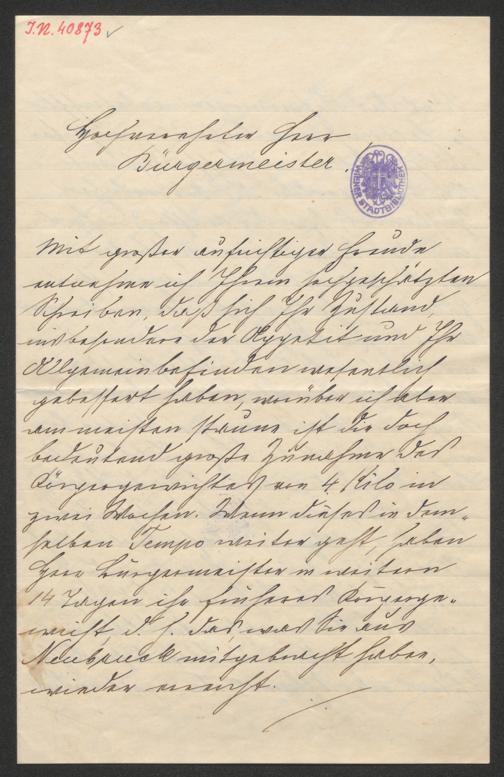 J.N. 40873
Hochverehrter Herr
Bürgermeister!
WIENER STADTBIBLIOTHEK
Mit großer aufrichtiger Freude
entnehme ich Ihrem hochgeschätzten
Schreiben, daß sich Ihr Zustand,
insbesondere der Appetit und Ihr
Allgemeinbefinden wesentlich
gebessert haben, worüber ich aber
am meisten staune ist die doch
bedeutend große Zunahme des
Körpergewichtes von 4 Kilo in
zwei Wochen. Wenn dieses in dem-
selben Tempo weiter geht, haben
Herr Bürgermeister in weitern
14 Tagen ihr früheres Körperge-
wicht d. h. das was Sie aus
mitgebracht haben,
wieder erreicht.